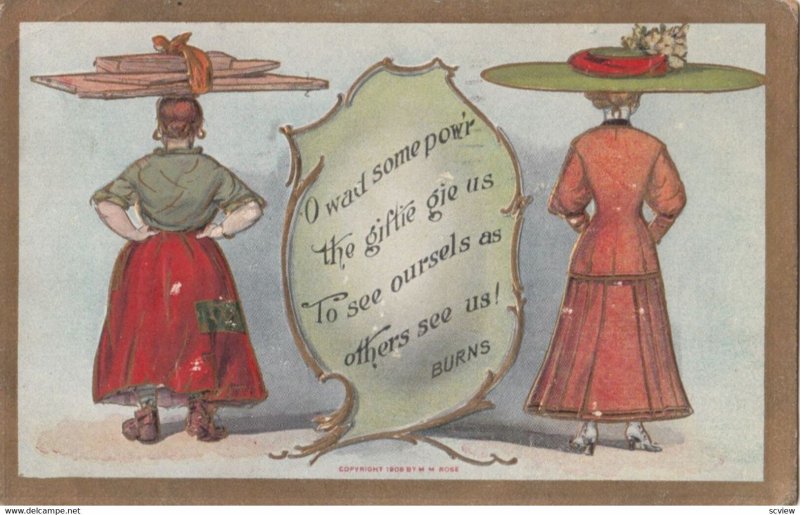 O wad some pow'r
the giftie gie us
To see oursels as
others see us!
BURNS
COPYRIGHT 1908 BY M M ROSE
scview
https://www.hipstamp.com